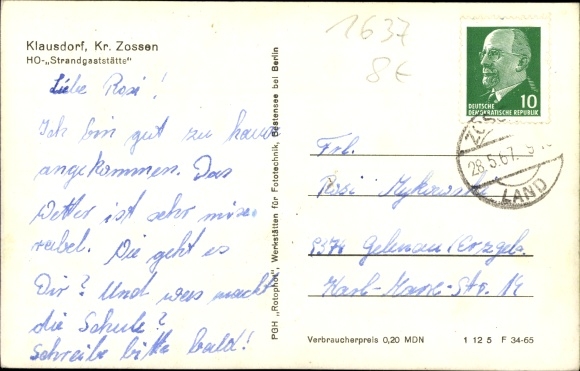 Klausdorf, Kr. Zossen
HO-„Strandgaststätte"
Liebe Rosi!
Ich bin gut zu hause
angekommen. Das
Wetter ist sehr mise-
rabel. Die geht es
Dir? Und was macht
die Schule?
Schreibe bitte bald!
PGH „Rotophot", Werkstätten für Fototechnik, Bestensee bei Berlin
1637
8€
DEUTSCHE
DEMOKRATISCHE REPUBLIK
10
ZOSSEN
28.5.67
LAND
Frl.
Rosi
9376 Gelenau/Erzgeb.
Karl-Marx-Str. 14
Verbraucherpreis 0,20 MDN
1 12 5 F 34-65